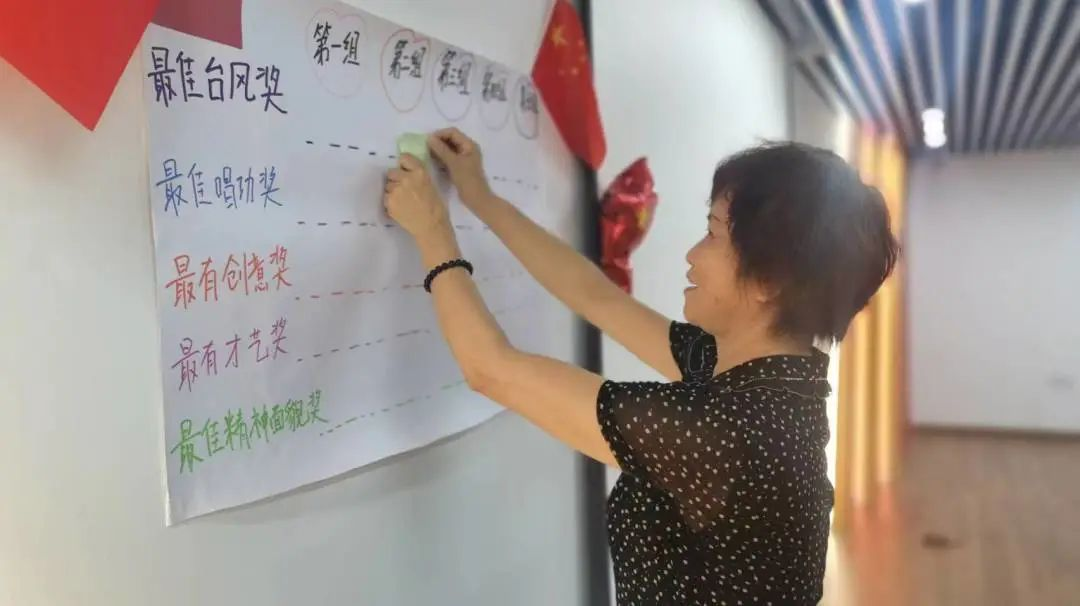 第一组 第二组 第三组 第四组
最佳台风奖
最佳唱功奖
最有创意奖
最有才艺奖
最佳精神面貌奖